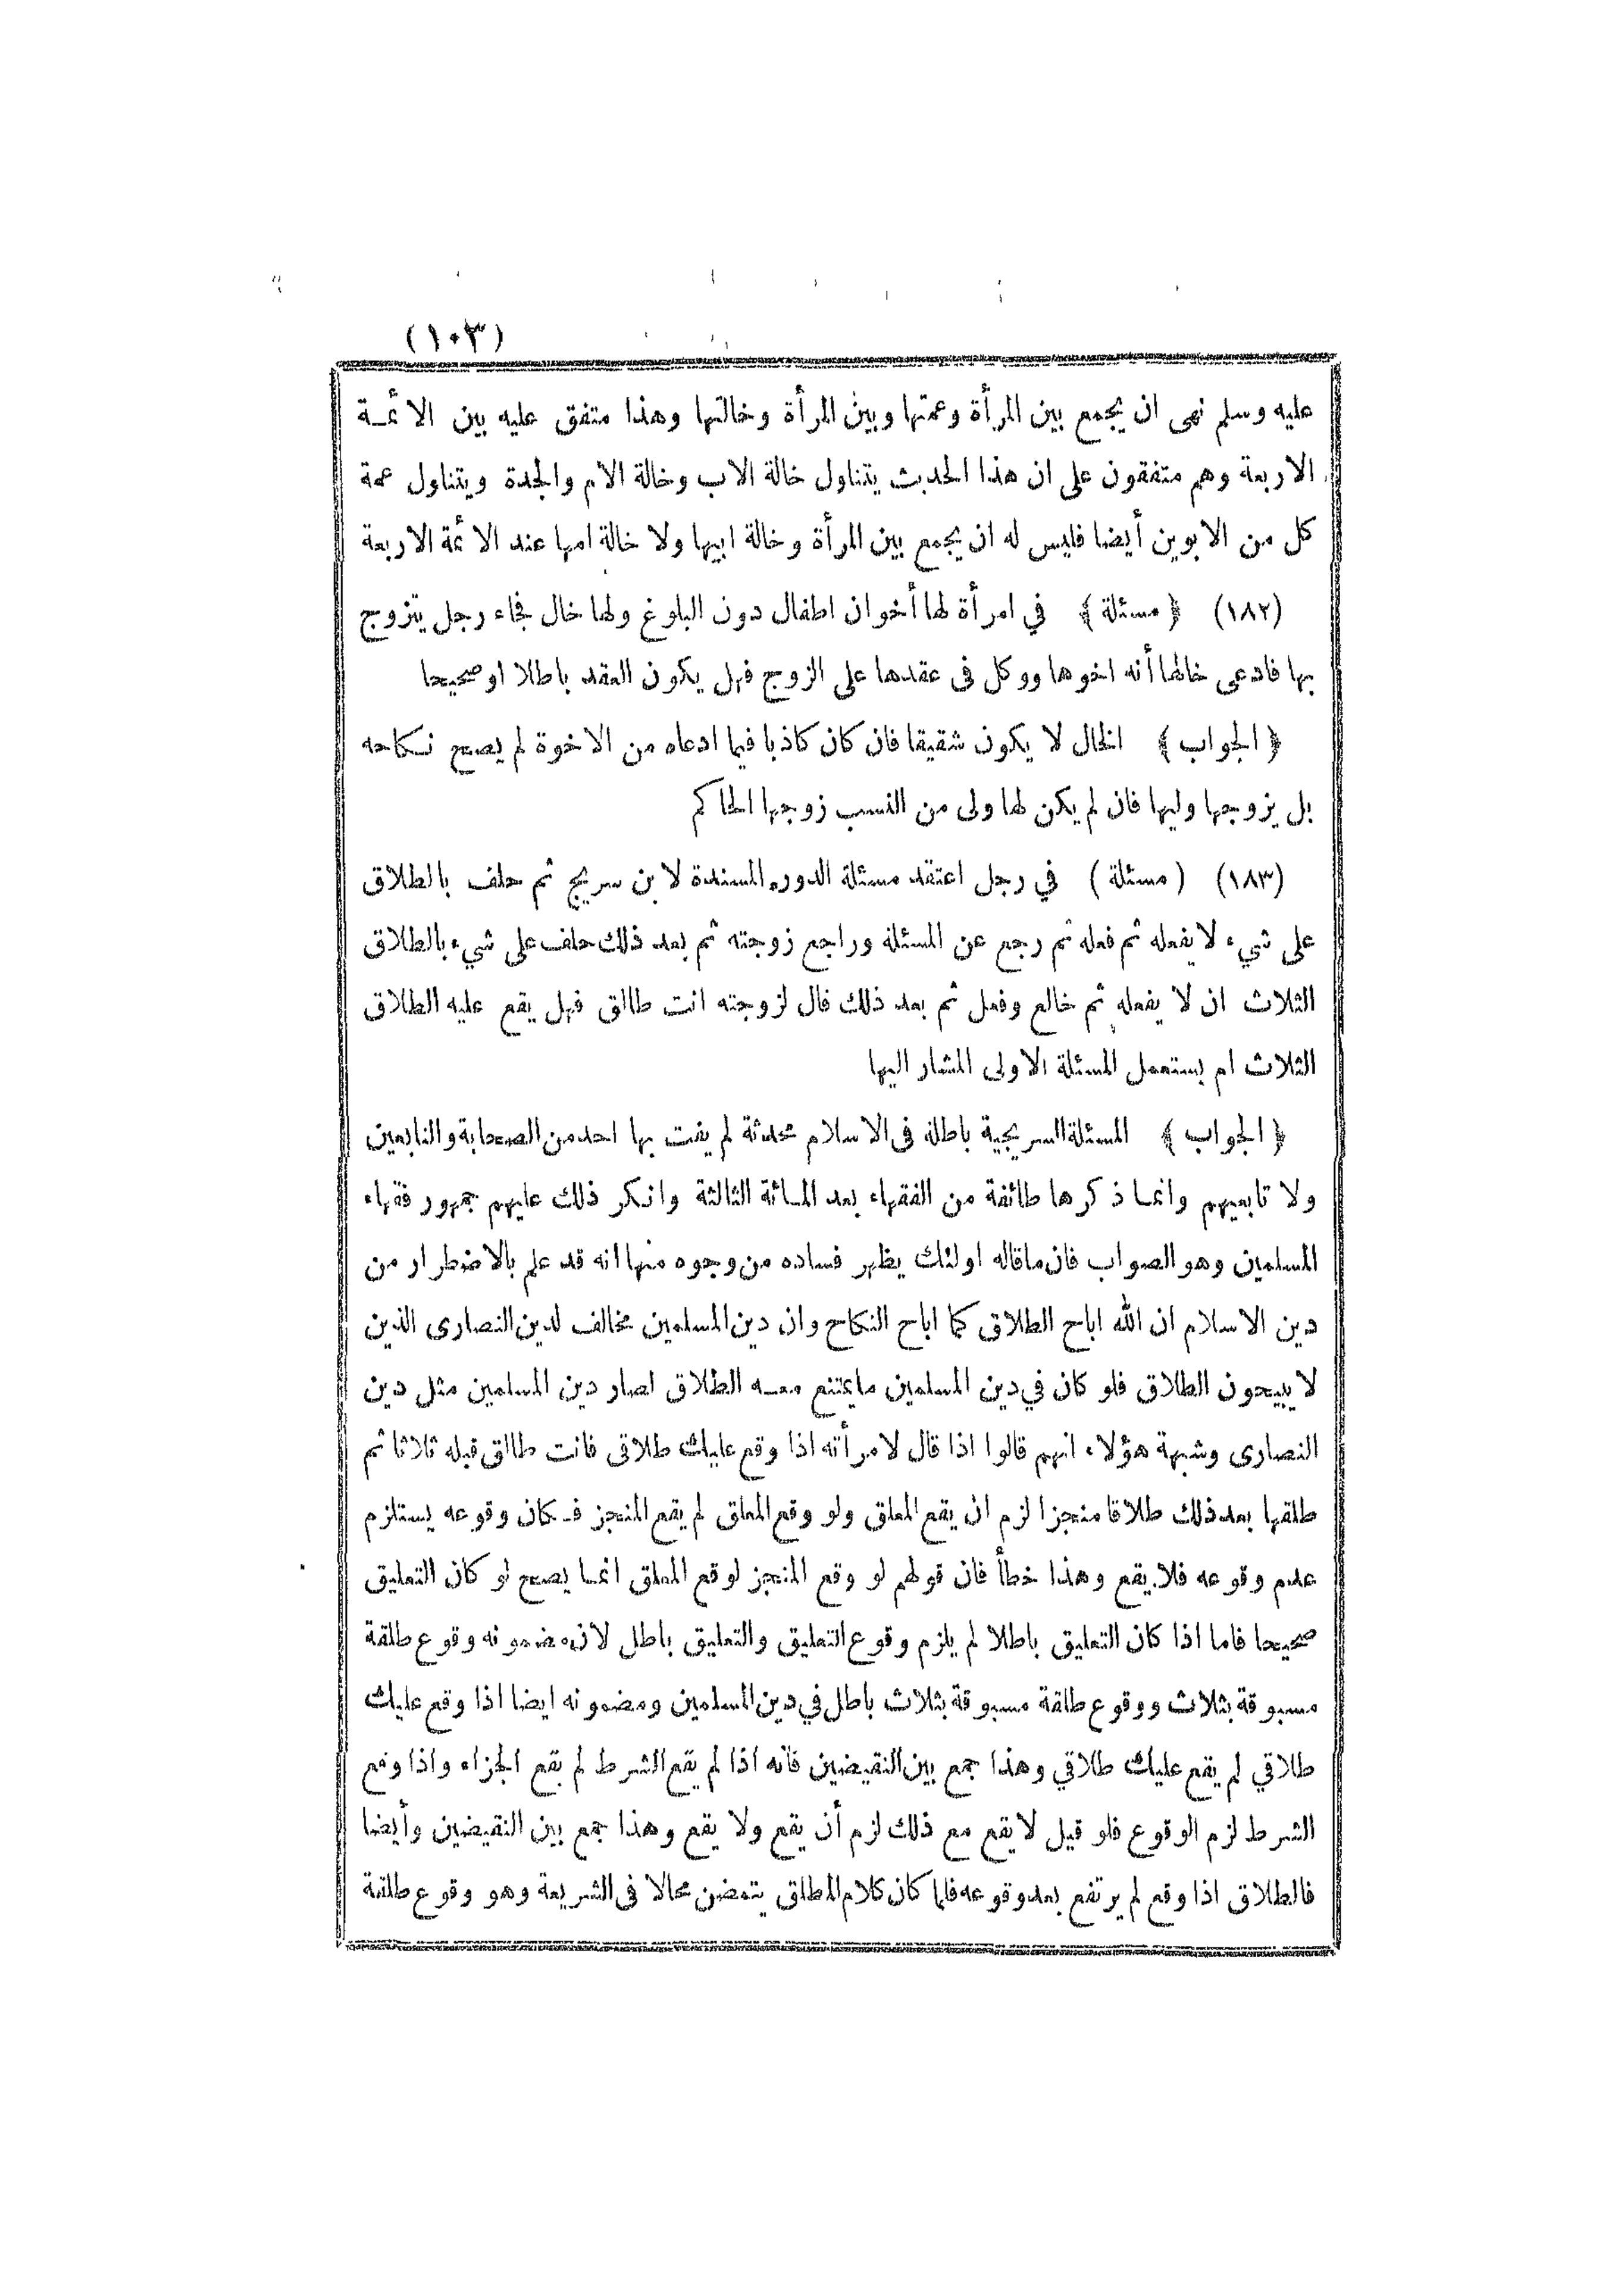 (١٠٣)
عليه وسلم نهى ان يجمع بين المرأة وعمتها وبين المرأة وخالتها وهذا متفق عليه بين الائمة
الاربعة وهم متفقون على ان هذا الحديث يتناول خالة الاب وخالة الام والجدة ويتناول عمة
كل من الابوين أيضا فليس له ان يجمع بين المرأة وخالة ابيها ولا خالة امها عند الائمة الاربعة
(١٨٢) ﴿ مسئلة ﴾ في امرأة لها أخوان اطفال دون البلوغ ولها خال فجاء رجل يتزوج
بها فادعى خالها أنه اخوها ووكل فى عقدها على الزوج فهل يكون العقد باطلا او صحيحا
﴿ الجواب ﴾ الخال لا يكون شقيقا فان كان كاذبا فيما ادعاه من الاخوة لم يصح نكاحه
بل يزوجها وليها فان لم يكن لها ولى من النسب زوجها الحاكم
(١٨٣) ( مسئلة ) في رجل اعتقد مسئلة الدور المسندة لابن سريج ثم حلف بالطلاق
على شيء لا يفعله ثم فعله ثم رجع عن المسئلة وراجع زوجته ثم بعد ذلك حلف على شيء بالطلاق
الثلاث ان لا يفعله ثم خالع وفعل ثم بعد ذلك قال لزوجته انت طالق فهل يقع عليه الطلاق
الثلاث ام يستعمل المسئلة الاولى المشار اليها
﴿ الجواب ﴾ المسئلة السريجية باطلة فى الاسلام محدثة لم يفت بها احد من الصحابة والتابعين
ولا تابعيهم وانما ذكرها طائفة من الفقهاء بعد المائة الثالثة وانكر ذلك عليهم جمهور فقهاء
المسلمين وهو الصواب فان ما قاله اولئك يظهر فساده من وجوه منها انه قد علم بالاضطرار من
دين الاسلام ان الله اباح الطلاق كما اباح النكاح وان دين المسلمين مخالف لدين النصارى الذين
لا يبيحون الطلاق فلو كان في دين المسلمين ما يمتنع معه الطلاق لصار دين المسلمين مثل دين
النصارى وشبهة هؤلاء انهم قالوا اذا قال لامرأته اذا وقع عليك طلاقى فانت طالق قبله ثلاثا ثم
طلقها بعد ذلك طلاقا منجزا لزم ان يقع المعلق ولو وقع المعلق لم يقع المنجز فكان وقوعه يستلزم
عدم وقوعه فلا يقع وهذا خطأ فان قولهم لو وقع المنجز لوقع المعلق انما يصح لو كان التعليق
صحيحا فاما اذا كان التعليق باطلا لم يلزم وقوع التعليق والتعليق باطل لان مضمونه وقوع طلقة
مسبوقة بثلاث ووقوع طلقة مسبوقة بثلاث باطل في دين المسلمين ومضمونه ايضا اذا وقع عليك
طلاقي لم يقع عليك طلاقي وهذا جمع بين النقيضين فانه اذا لم يقع الشرط لم يقع الجزاء واذا وقع
الشرط لزم الوقوع فلو قيل لا يقع مع ذلك لزم أن يقع ولا يقع وهذا جمع بين النقيضين وأيضا
فالطلاق اذا وقع لم يرتفع بعد وقوعه فلما كان كلام المطلق يتضمن محالا فى الشريعة وهو وقوع طلقة